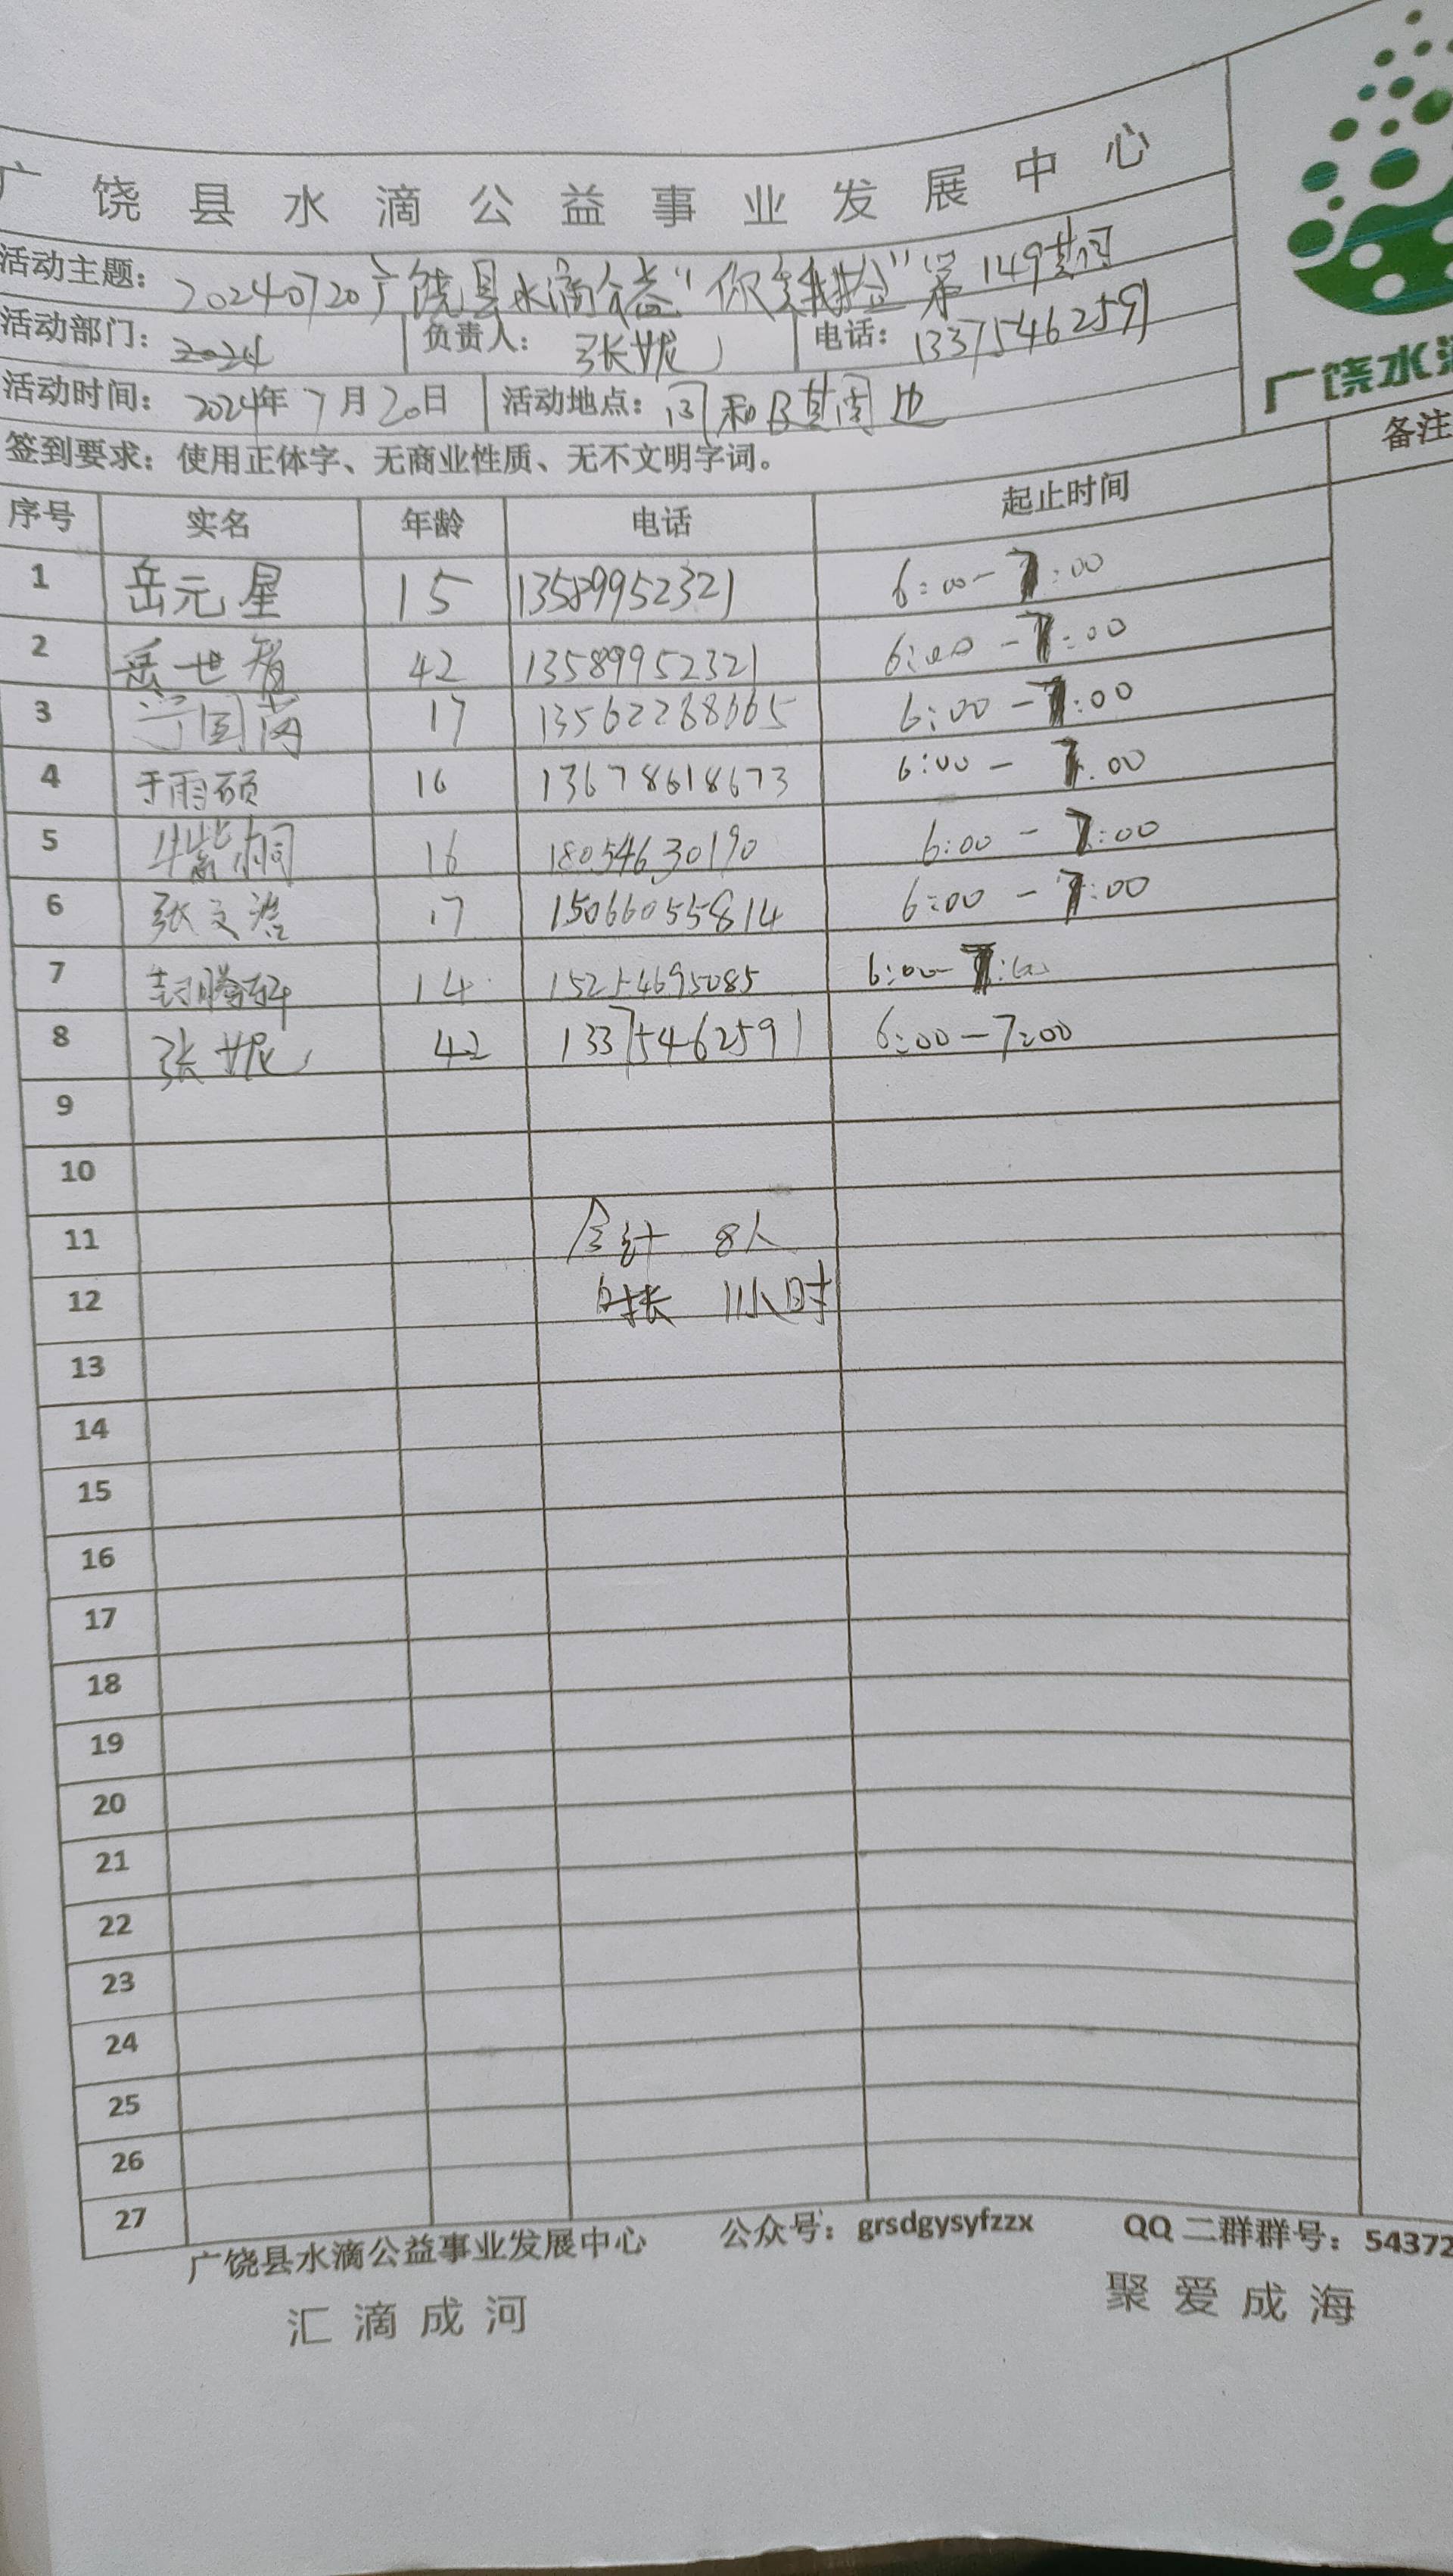 广饶县水滴公益事业发展中心
活动主题：20240720广饶县水滴公益“你丢我捡”第149期
活动部门：2024 负责人：张妮 电话：13375462591
广饶水滴
活动时间：2024年7月20日 活动地点：同和及其周边
签到要求：使用正体字、无商业性质、无不文明字词。
序号 实名 年龄 电话 起止时间 备注
1 岳元星 15 13589952321 6:00-7:00
2 岳世智 42 13589952321 6:00-7:00
3 17 13562268665 6:00-7:00
4 于雨硕 16 13678618673 6:00-7:00
5 紫桐 16 18054630190 6:00-7:00
6 张文浩 17 15066055814 6:00-7:00
7 封腾 14 15254695085 6:00-7:00
8 张妮 42 13375462591 6:00-7:00
9
10
11 合计 8人
12 时长 1小时
13
14
15
16
17
18
19
20
21
22
23
24
25
26
27
广饶县水滴公益事业发展中心 公众号：grsdgysyfzzx QQ二群群号：54372
汇滴成河 聚爱成海